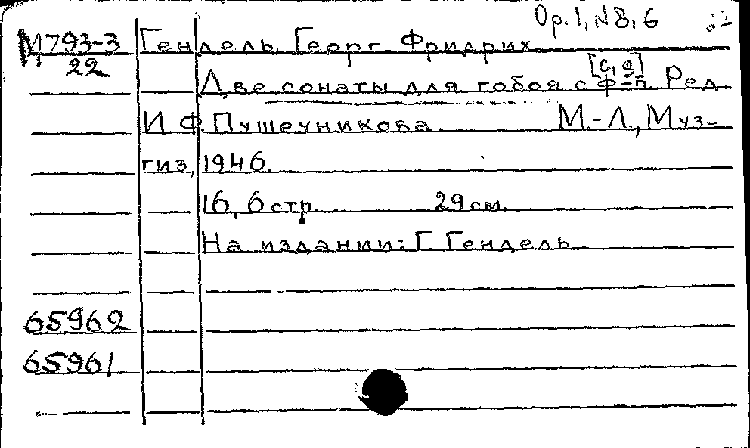 Op. 1, № 8, 6
М793-3 Гендель Георг Фридрих
22 [c, g]
Две сонаты для гобоя с ф-п. Ред.
И. Ф. Пушечникова. М.-Л., Муз-
гиз, 1946.
16, 6 стр. 29 см.
На издании: Г. Гендель
65962
65961